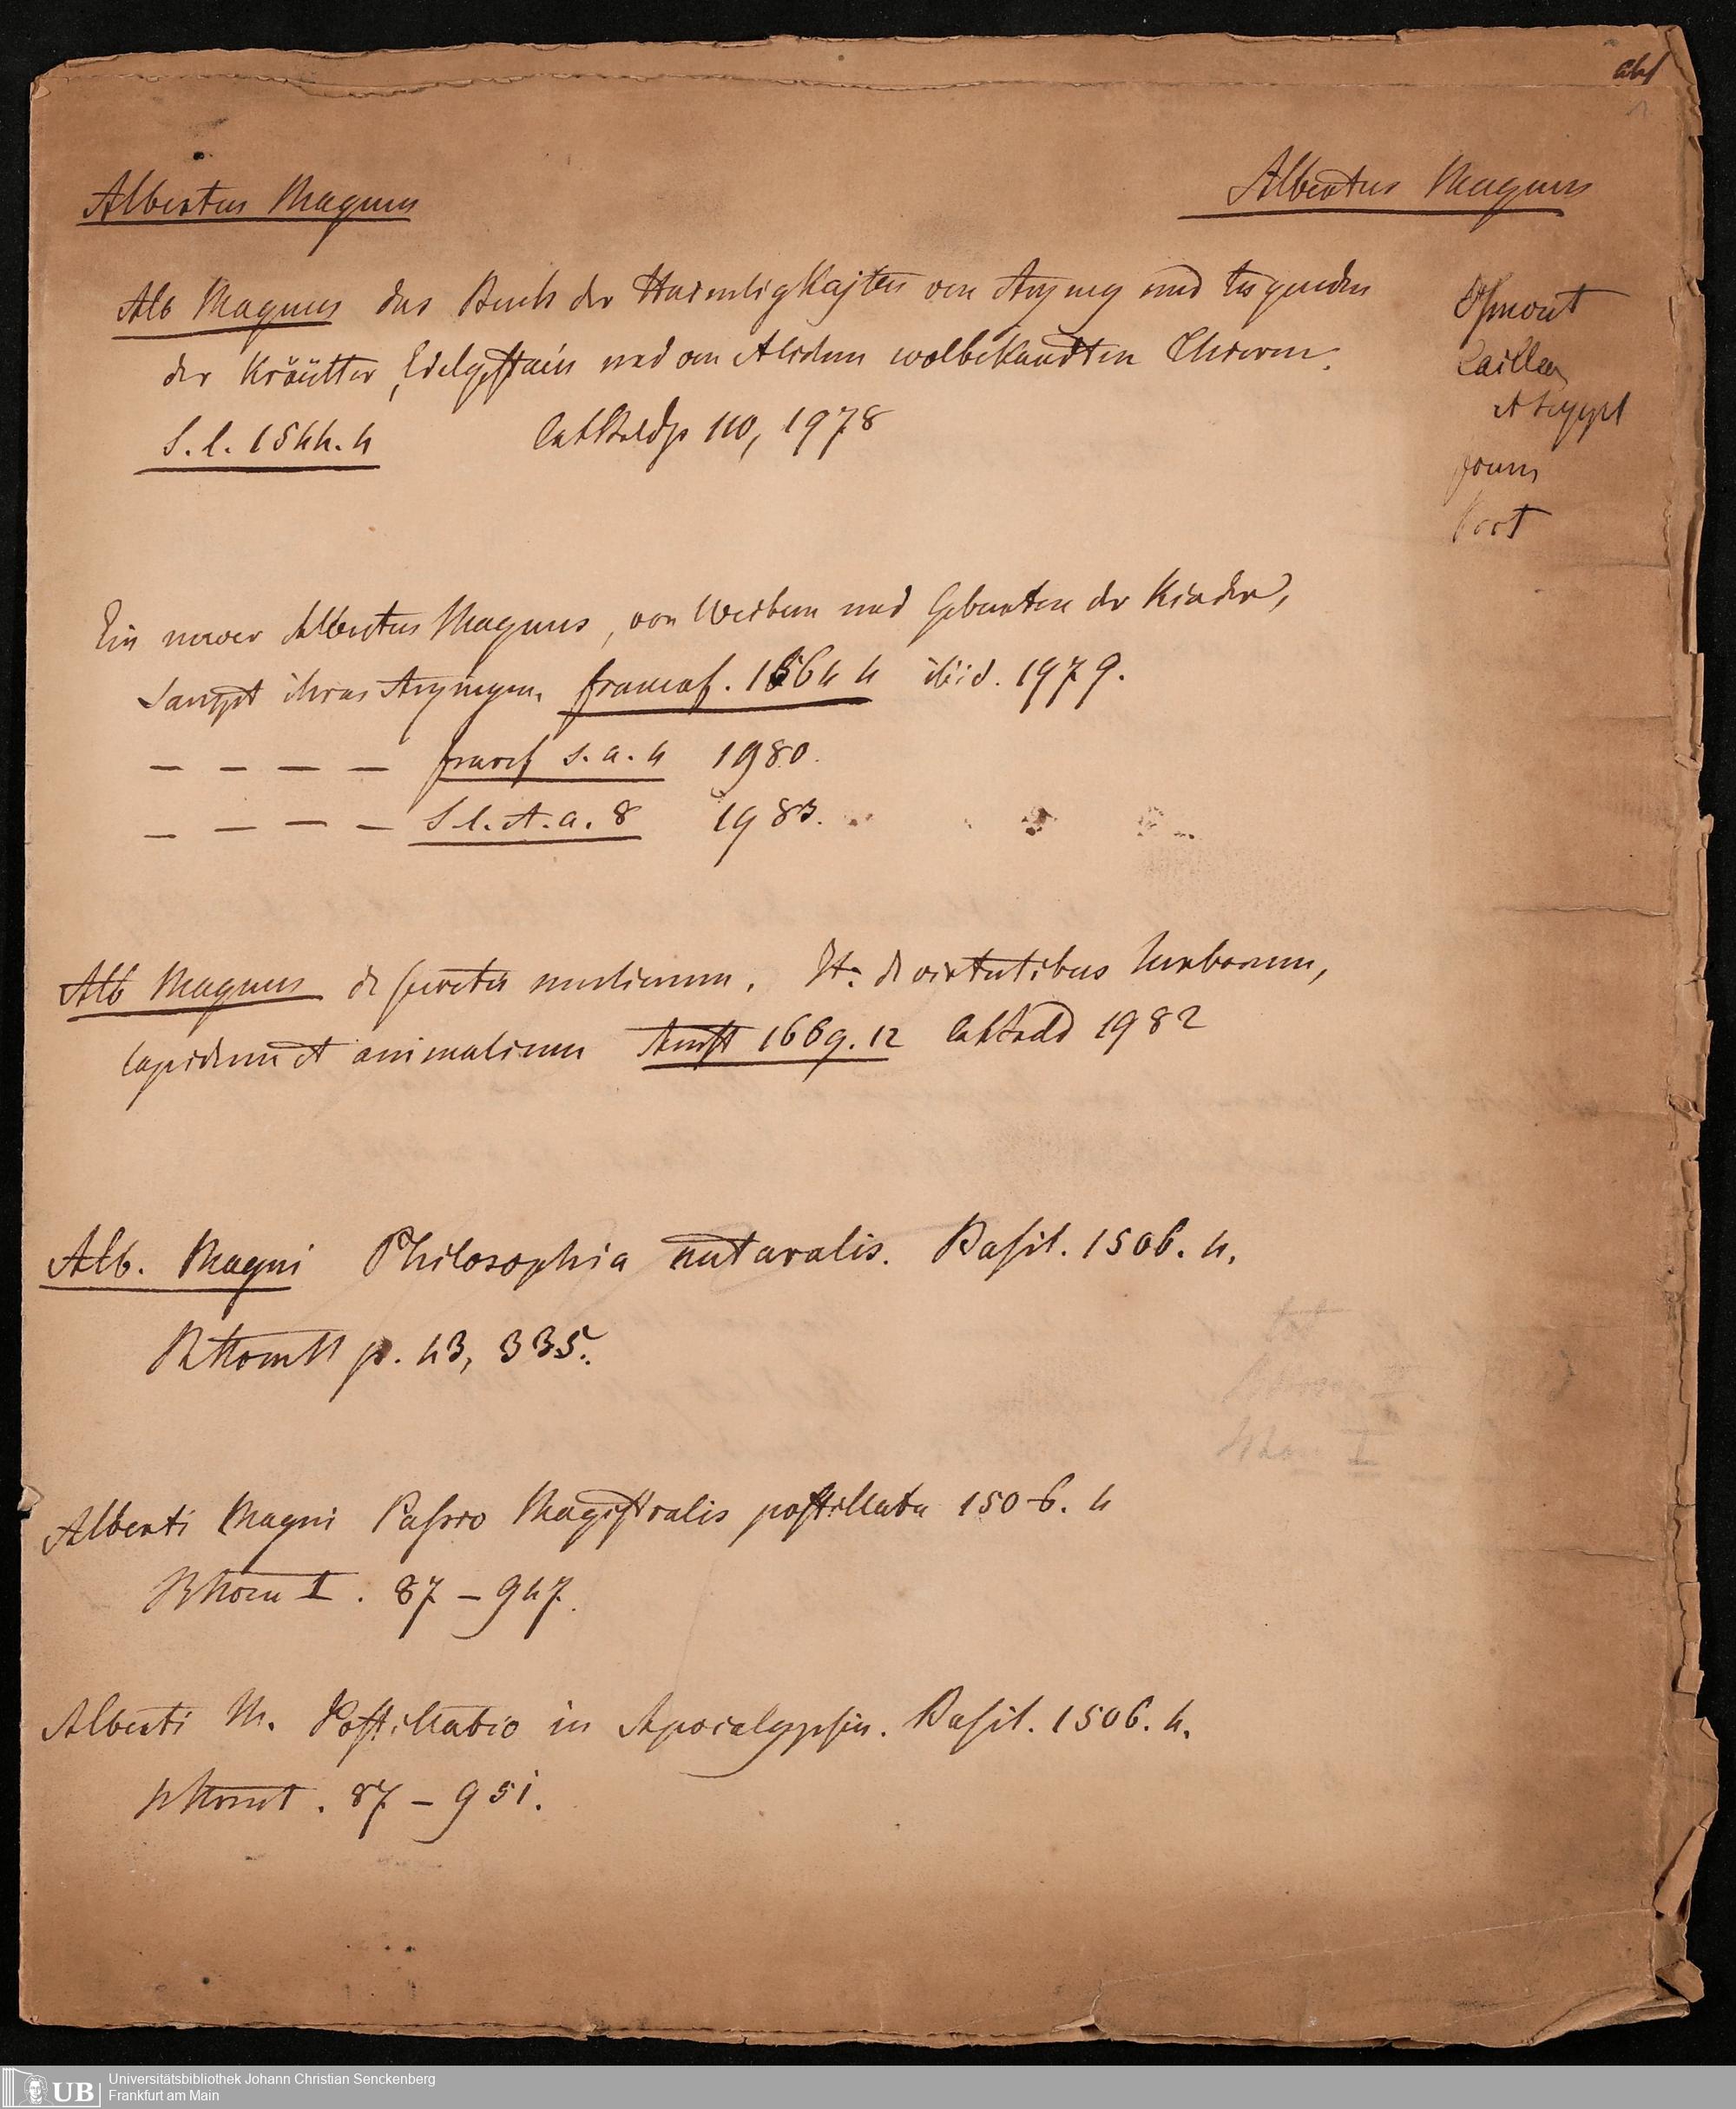 abs
Albertus Magnus
Albertus Magnus
Alb Magnus das Buch der Haimligkajten von Arzney und Tugenden
der Kräutter, Edelgestain und von etlichen wolbekandten Thieren.
S. l. 1544. 4 110, 1978
Osmont
Journ
Ein newer Albertus Magnus, von Weibern und Geburten der Kinder,
Sampt ihren Arzneyen. Francof. 1564 4 ibid. 1979.
— — — — Francf s. a. 4 1980.
— — — — S l. et. a. 8 1983.
Alb Magnus de secretis mulierum. It. de virtutibus herbarum,
lapidum et animalium Amst 1669. 12 1982
Alb. Magni Philosophia naturalis. Basil. 1506. 4.
p. 43, 335.
Alberti Magni Passio Magistralis postillata 1506. 4
I. 87 – 947.
Alberti M. Postillatio in Apocalypsin. Basil. 1506. 4.
87 – 951.
UB
Universitätsbibliothek Johann Christian Senckenberg
Frankfurt am Main